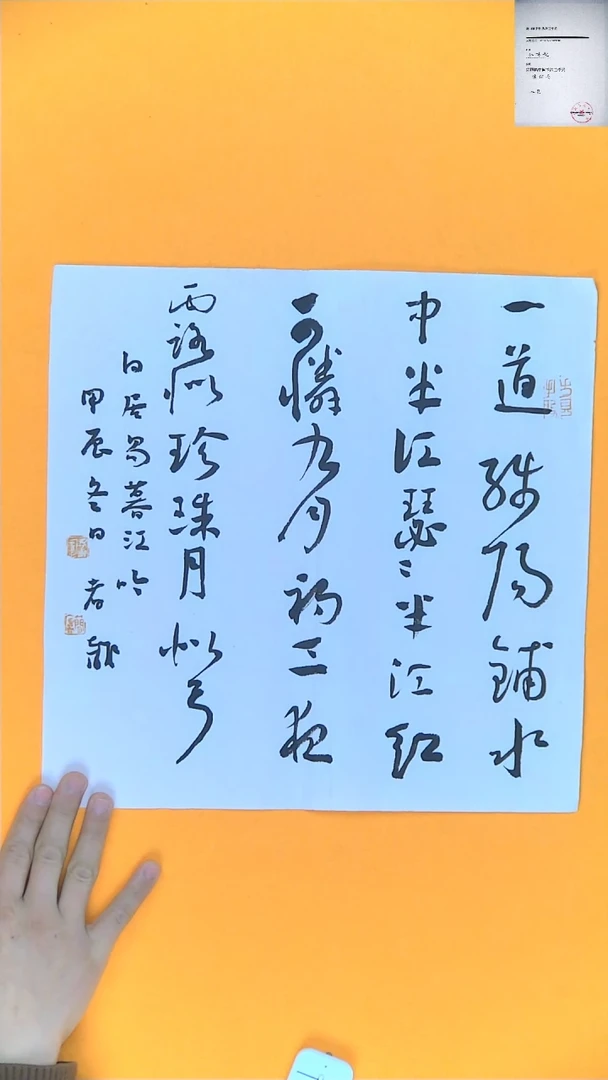 一道殘陽鋪水
中半江瑟〻半江紅
可憐九月初三夜
露似珍珠月似弓
白居易暮江吟
甲辰冬日